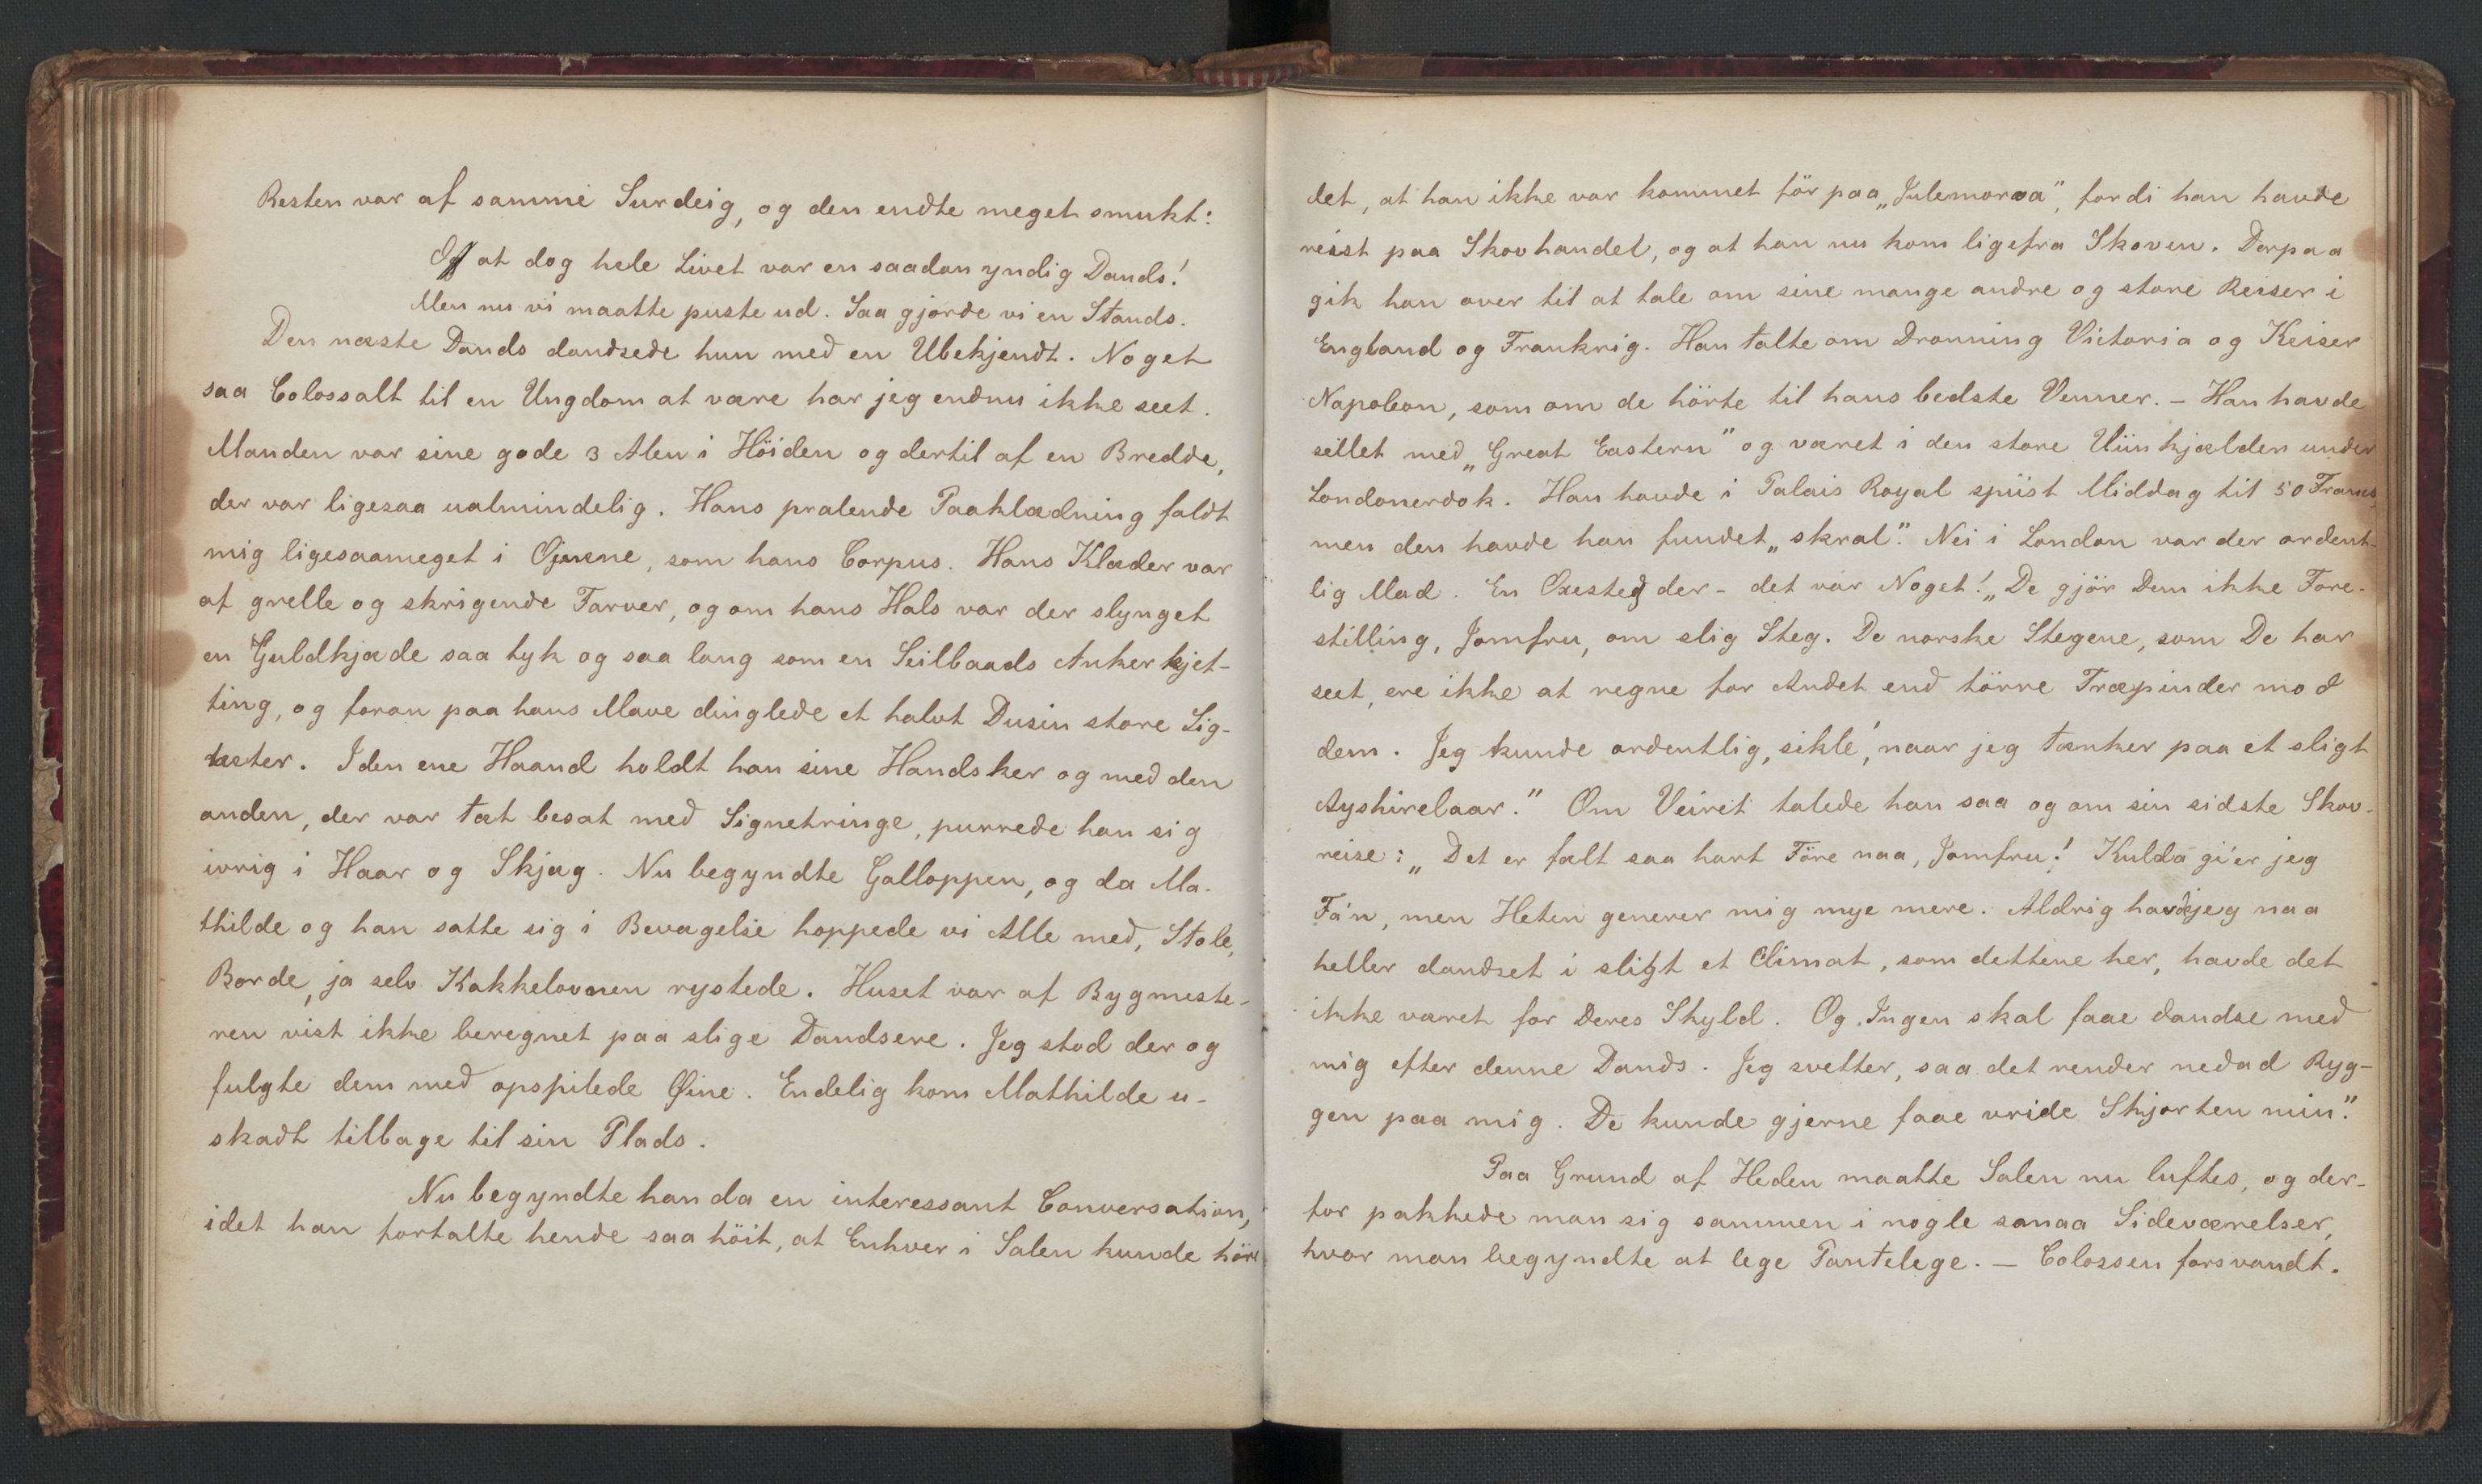 Resten var af samme Surdeig, og den endte meget smukt:
Off at dog hele Livet var en saadan yndig Dands!
Men nu vi maatte puste ud. Saa gjorde vi en Stands.
Den næste Dands dandsede hun med en Ubekjendt. Noget
saa Colossalt til en Ungdom at være har jeg endnu ikke seet.
Manden var sine gode 3 Alen i Höiden og dertil af en Bredde,
der var ligesaa ualmindelig. Hans pralende Paaklædning faldt
mig ligesaameget i Øjnene, som hans Corpus. Hans Klæder var
af grelle og skrigende Farver, og om hans Hals var der slynget
en Guldkjæde saa tyk og saa lang som en Seilbaads Ankerkjet-
ting, og foran paa hans Mave dinglede et halvt Dusin store Sig-
neter. I den ene Haand holdt han sine Handsker og med den
anden, der var tæt besat med Signetringe, purrede han sig
ivrig i Haar og Skjæg. Nu begyndte Galloppen, og da Ma-
thilde og han satte sig i Bevægelse hoppede vi Alle med, Stole,
Borde, ja selv Kakkelovnen rystede. Huset var af Bygmeste-
ren vist ikke beregnet paa slige Dandsere. Jeg stod der og
fulgte dem med opspilede Øine. Endelig kom Mathilde u-
skadt tilbage til sin Plads.
Nu begyndte han da en interessant Conversation,
idet han fortalte hende saa höit, at Enhver i Salen kunde höre
det, at han ikke var kommet för paa „Julemoroa", fordi han havde
reisst paa Skovhandel, og at han nu kom ligefra Skoven. Derpaa
gik han over til at tale om sine mange andre og store Reiser i
England og Frankrig. Han talte om Dronning Victoria og Keiser
Napoleon, som om de hörte til hans bedste Venner. – Han havde
seilet med „Great Eastern" og været i den store Viinkjælden under
Londonerdok. Han havde i Palais Royal spiist Middag til 50 Francs,
men den havde han fundet „skral". Nei i London var der ordent-
lig Mad. En Oxesteg der – det var Noget! „De gjör Dem ikke Fore-
stilling, Jomfru, om slig Steg. De norske Stegene, som De har
seet, ere ikke at regne for Andet end törre Træpinder mod
dem. Jeg kunde ordentlig, sikle', naar jeg tænker paa et sligt
Ayshirelaar." Om Veiret talede han saa og om sin sidste Skov-
reise: „Det er fælt saa hart Före naa, Jomfru! Kulda gi'er jeg
Fa'n, men Heten generer mig mye mere. Aldrig havde jeg naa
heller dandset i sligt et Climat, som dettene her, havde det
ikke været for Deres Skyld. Og Ingen skal faae dandse med
mig efter denne Dands. Jeg svetter, saa det render nedad Ryg-
gen paa mig. De kunde gjerne faae vride Skjorten min".
Paa Grund af Heden maatte Salen nu luftes, og der-
for pakkede man sig sammen i nogle smaa Sideværelser,
hvor man begyndte at lege Pantelege. – Colossen forsvandt.